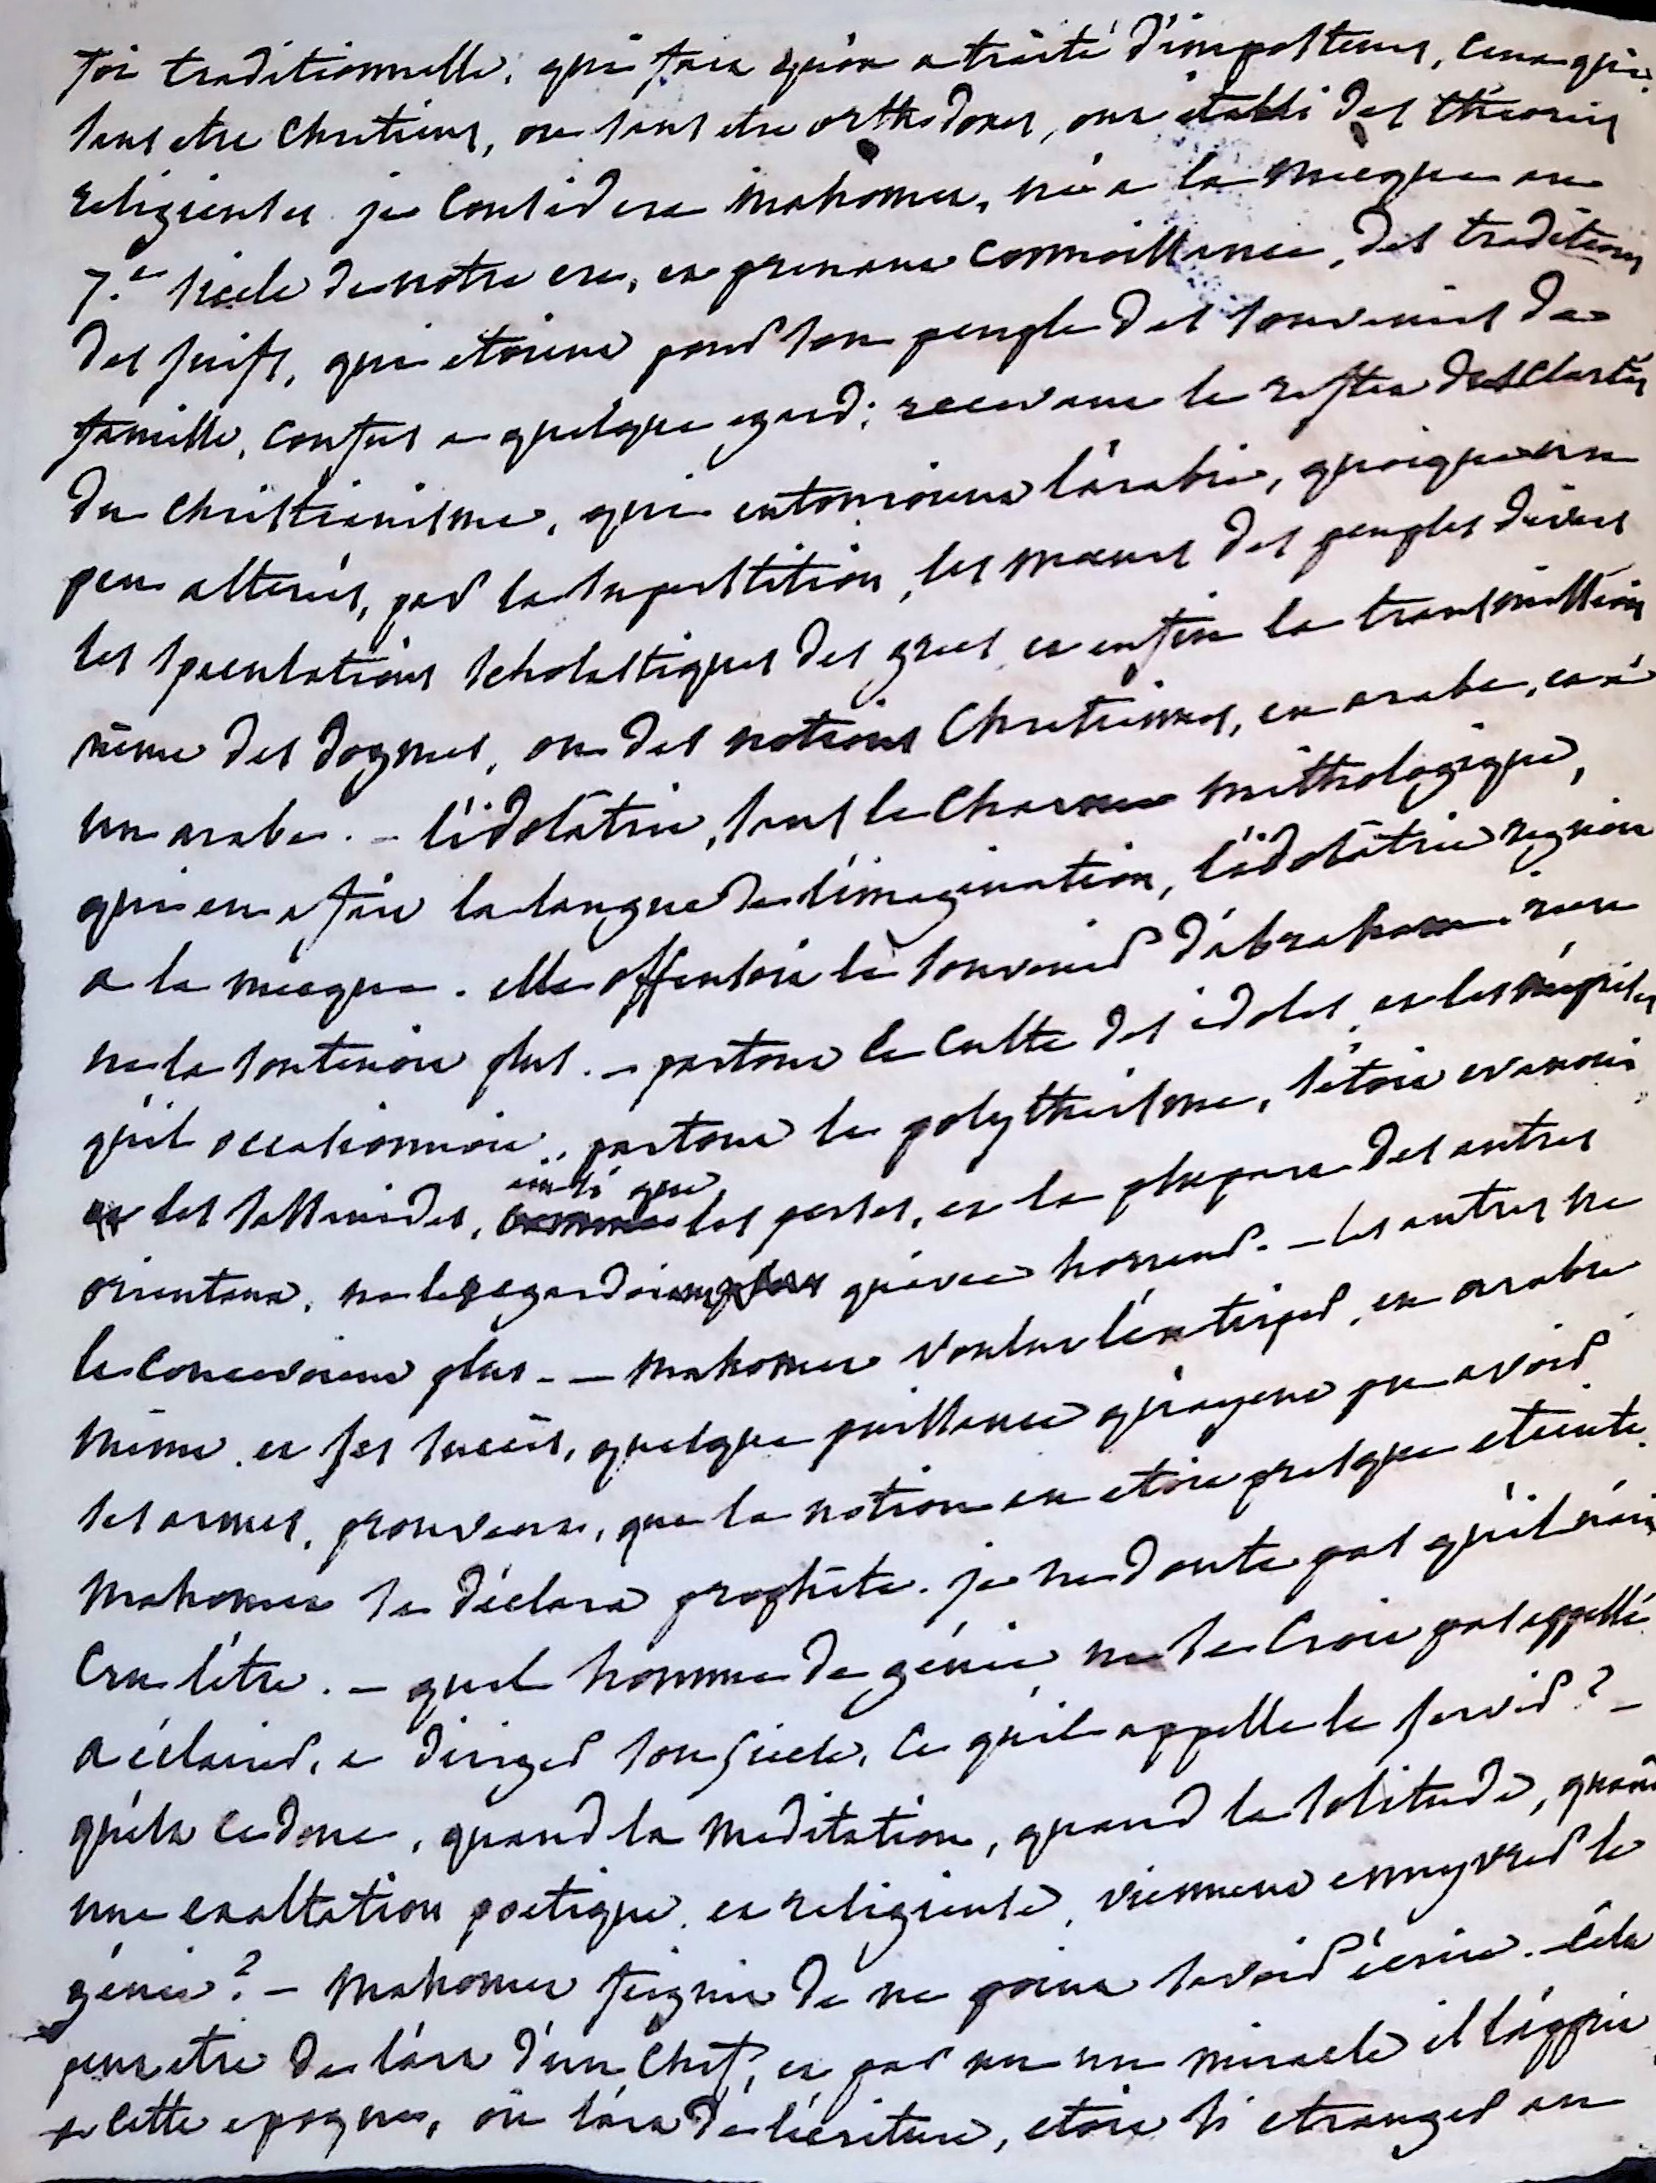 foi traditionnelle. qui fait qu'on a traité d'imposteurs, ceux qui
sans etre chretiens, ou sans etre orthodoxes, ont établi des théories
religieuses je considere mahomet, né a la mecque au
7.e siecle de notre ere, et prenant connoissance, des traditions
des juifs, qui etoient pour son peuple des souvenirs de
famille, confus a quelque egard; recevant le reste des clartés
du christianisme, qui entouroient l'arabie, quoiqu'un
peu alterés, par la superstition, les mœurs des peuples divers
les speculations scholastiques des grecs et enfin la transmission
même des dogmes, ou des notions chretiennes, en arabe, et à
un arabe. - l'idolâtrie, sans le charme mithologique,
qui en a fait la langue de l'imagination, l'idolâtrie regnoit
a la mecque. elle offensoit le souvenir d'abraham. rien
ne la soutenoit plus. - partout le culte des idoles, et les mépris
qu'il occasionnoit, partout le polytheisme, s'etoit evanoui
les sassanides, ainsi que les perses, et la plupart des autres
orientaux, ne le regardoient qu'avec horreur. - les autres ne
le concevoient plus - - mahomet voulut l'extirper, en arabie
même. et ses succès, quelque puissance qu'ayent pu avoir
ses armes, prouvent, que la notion en etoit presque eteinte.
mahomet se déclara prophête. je ne doute pas qu'il n'ait
cru l'être. - quel homme de génie ne se croit pas appellé
a éclairer, a diriger son siecle, ce qu'il appelle le servir? -
qu'est ce donc, quand la meditation, quand la solitude, quand
une exaltation poetique et religieuse, viennent ennyvrer le
génie? - mahomet feignit de ne point savoir écrire. - cela
peut etre de l'art d'un chef, et par un un miracle il l'apprit
a cette epoque, où l'art de l'écriture, etoit si etranger au